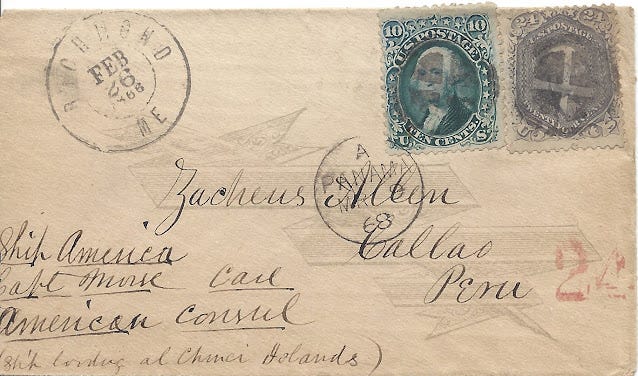 RICHMOND
FEB
26
1868
ME
10 10
U.S. POSTAGE
TEN CENTS
U S
24 24
U.S. POSTAGE
U S
A
PANAMA
MAR
68
Zacheus Allen
Callao
Peru
24
Ship America
Capt Morse Care
American Consul
(Ship loading at Chinci Holands)